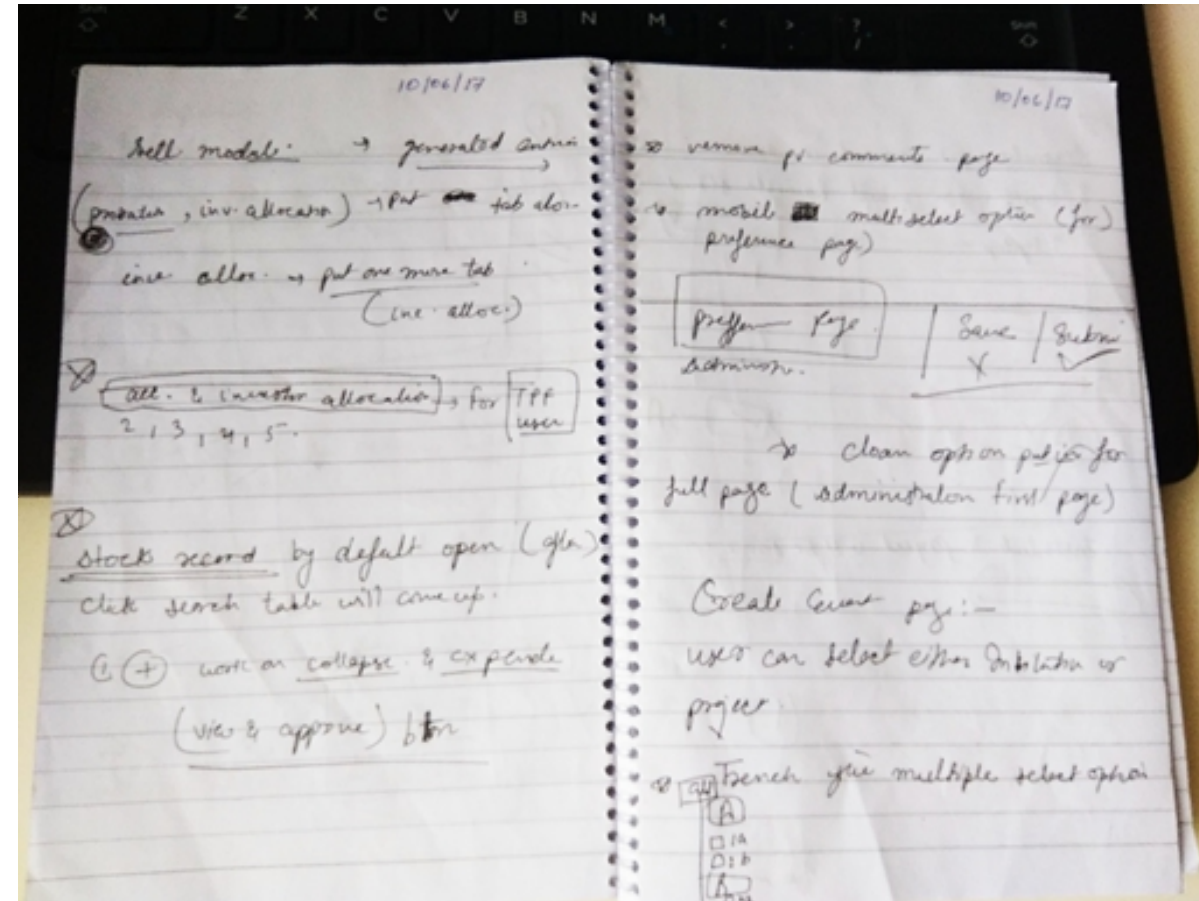 Z X C V B N M < > ?
, . /
10/06/17
Sell modal. → generated
(, inv. allocation) → put tab
inve alloc. → put one more tab
(inv. alloc.)
all. & investor allocation → for TPF
user
2, 3, 4, 5.
Stock record by defalt open (after)
click search table will come up.
+ work on collapse & expende
(view & approve) btn
10/06/17
remove pr comments page
mobil multiselect option (for)
preference page)
page
Save Submi
X ✓
option put for
full page (administration first page)
Create page :-
user can select either or
project
all multiple select option
A
□ 1A
□ 1b
A